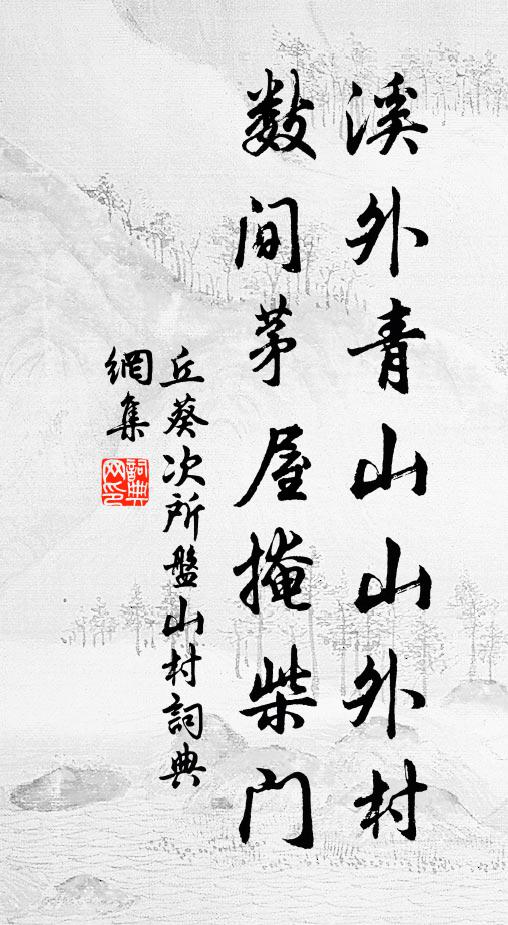 溪外青山山外村
数间茅屋掩柴门
丘葵次所盤山村詞典
網集
詞典网印